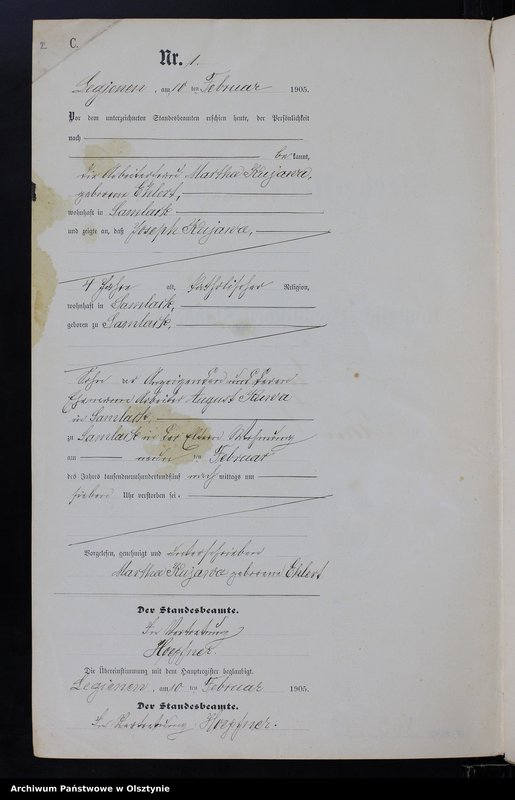 C.
Nr. 1.
Legienen, am 10 ten Februar 1905.
Vor dem unterzeichneten Standesbeamten erschien heute, der Persönlichkeit
nach
be kannt,
die Arbeiterfrau Martha Kujawa,
geborene Ehlert,
wohnhaft in Samlack
und zeigte an, daß Joseph Kujawa,
4 Jahre alt, katholischer Religion,
wohnhaft in Samlack,
geboren zu Samlack,
Sohn der Anzeigenden und deren
Ehemanns Arbeiter August Kujawa
in Samlack,
zu Samlack in der Eltern Wohnung
am neun ten Februar
des Jahres tausendneunhundertundfünf nach mittags um
sieben Uhr verstorben sei.
Vorgelesen, genehmigt und unterschrieben
Martha Kujawa geborene Ehlert
Der Standesbeamte.
In Vertretung
Hoepfner.
Die Übereinstimmung mit dem Hauptregister beglaubigt.
Legienen, am 10 ten Februar 1905.
Der Standesbeamte.
In Vertretung Hoepfner.
Archiwum Państwowe w Olsztynie